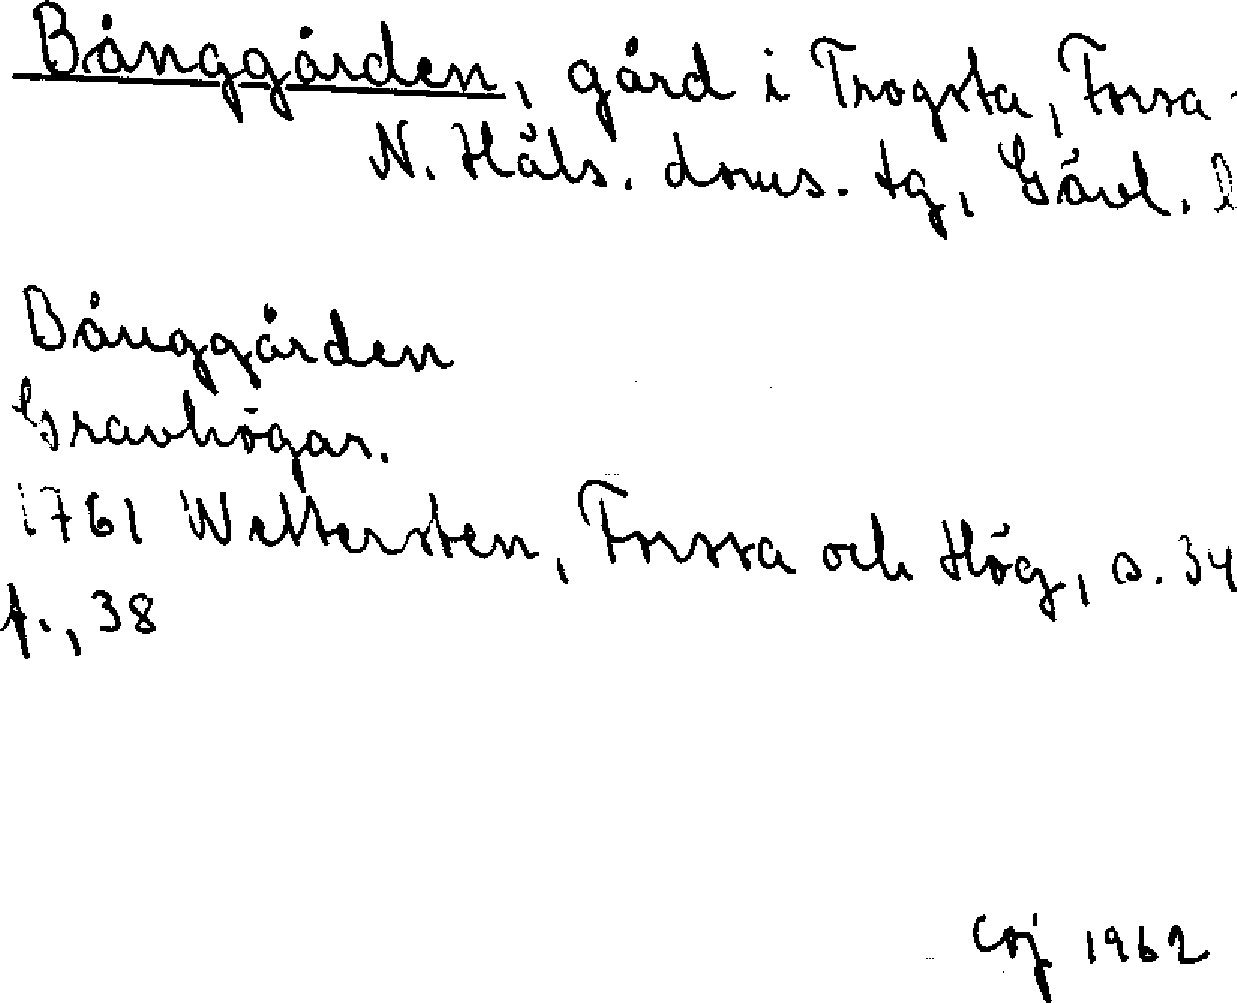 Bånggården, gård i Trogsta, Forsa
N. Häls. doms. tg, Gävl. l
Bånggården
Gravhögar.
1761 Wettersten, Forssa och Hög, s. 34
f., 38
CoJ 1962